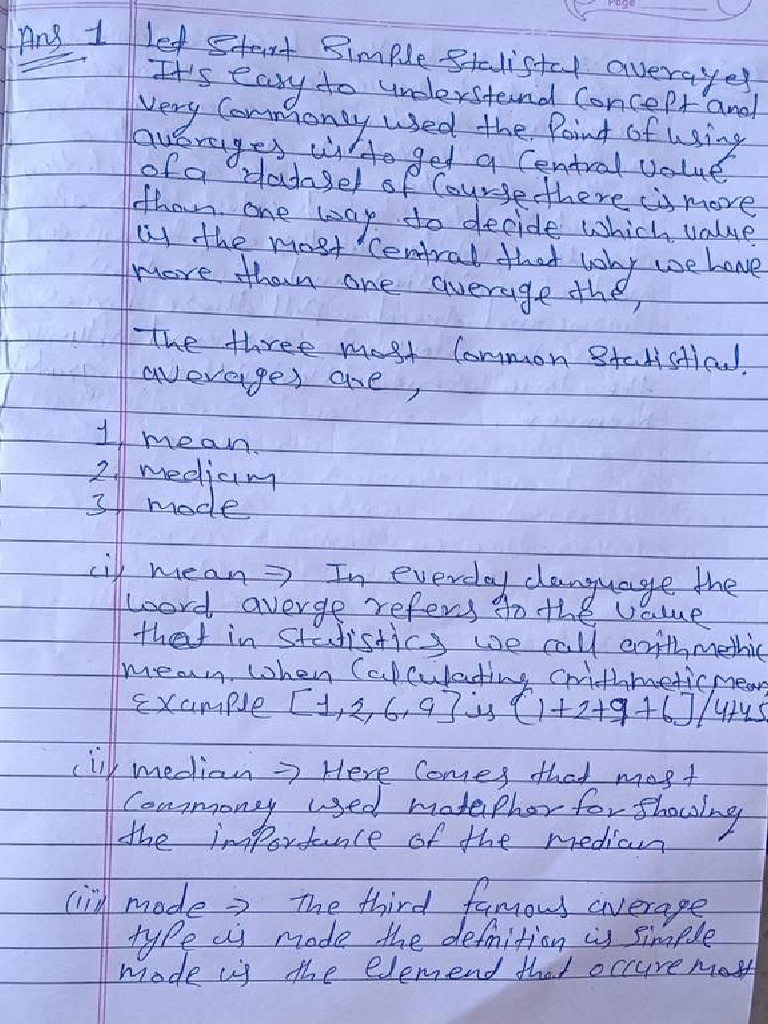 Page
Ans 1 Let Start Simple Stalistal averages
It's easy to understand Concept and
very Commonly used the Point of using
averages is to get a Central value
of a dataset of Course there is more
than one way to decide which value
is the most Central that why we have
more than one average the,
The three most Common Statistical.
averages are,
1, mean.
2, mediam
3, mode
(i) mean ⇒ In everday language the
word averge refers to the value
that in Statistics we call arithmethic
mean. When Calculating arithmetic mean
Example [1,2,6,9] is (1+2+9+6]/4
(ii) median → Here Comes that most
Commoney used mataphor for Showing
the importance of the median
(iii) mode → The third famous average
type is mode the defnition is Simple
mode is the Elemend that occure most